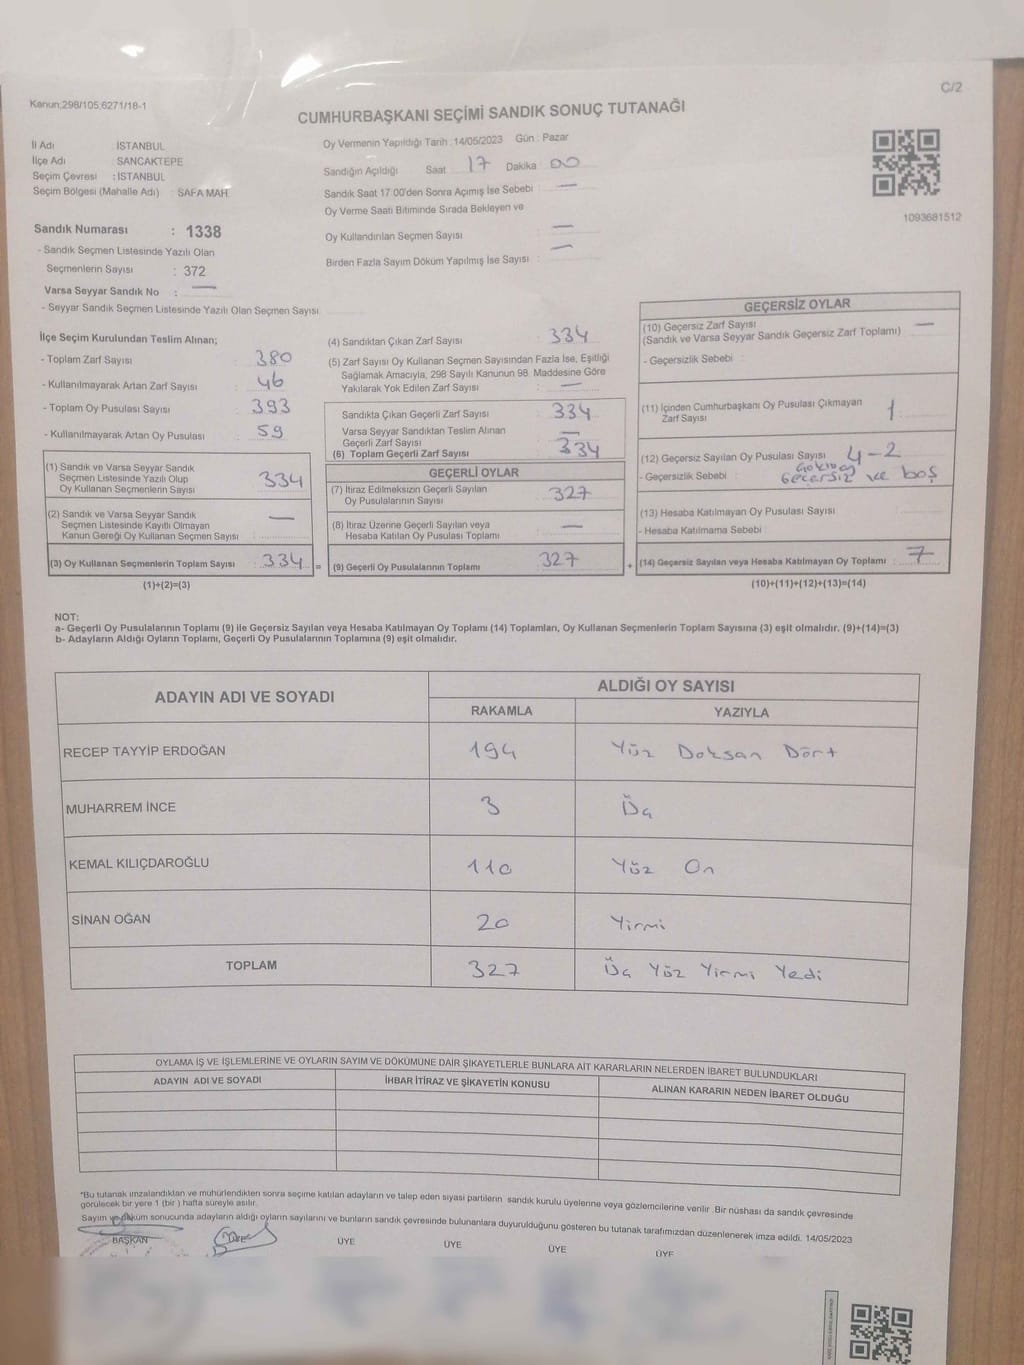 C/2
Kanun:298/105,6271/18-1
CUMHURBAŞKANI SEÇİMİ SANDIK SONUÇ TUTANAĞI
İl Adı : İSTANBUL
İlçe Adı : SANCAKTEPE
Seçim Çevresi : İSTANBUL
Seçim Bölgesi (Mahalle Adı) : SAFA MAH.
Sandık Numarası : 1338
- Sandık Seçmen Listesinde Yazılı Olan
Seçmenlerin Sayısı : 372
Varsa Seyyar Sandık No : —
- Seyyar Sandık Seçmen Listesinde Yazılı Olan Seçmen Sayısı
Oy Vermenin Yapıldığı Tarih : 14/05/2023 Gün : Pazar
Sandığın Açıldığı Saat 17 Dakika 00
Sandık Saat 17:00'den Sonra Açımış İse Sebebi : —
Oy Verme Saati Bitiminde Sırada Bekleyen ve
Oy Kullandırılan Seçmen Sayısı : —
Birden Fazla Sayım Döküm Yapılmış İse Sayısı : —
1093681512
İlçe Seçim Kurulundan Teslim Alınan;
- Toplam Zarf Sayısı : 380
- Kullanılmayarak Artan Zarf Sayısı : 46
- Toplam Oy Pusulası Sayısı : 393
- Kullanılmayarak Artan Oy Pusulası : 59
(1) Sandık ve Varsa Seyyar Sandık
Seçmen Listesinde Yazılı Olup
Oy Kullanan Seçmenlerin Sayısı : 334
(2) Sandık ve Varsa Seyyar Sandık
Seçmen Listesinde Kayıtlı Olmayan
Kanun Gereği Oy Kullanan Seçmen Sayısı : —
(3) Oy Kullanan Seçmenlerin Toplam Sayısı : 334 =
(1)+(2)=(3)
(4) Sandıktan Çıkan Zarf Sayısı : 334
(5) Zarf Sayısı Oy Kullanan Seçmen Sayısından Fazla İse, Eşitliği
Sağlamak Amacıyla, 298 Sayılı Kanunun 98. Maddesine Göre
Yakılarak Yok Edilen Zarf Sayısı : —
Sandıkta Çıkan Geçerli Zarf Sayısı : 334
Varsa Seyyar Sandıktan Teslim Alınan
Geçerli Zarf Sayısı : —
(6) Toplam Geçerli Zarf Sayısı : 334
GEÇERLİ OYLAR
(7) İtiraz Edilmeksizin Geçerli Sayılan
Oy Pusulalarının Sayısı : 327
(8) İtiraz Üzerine Geçerli Sayılan veya
Hesaba Katılan Oy Pusulası Toplamı : —
(9) Geçerli Oy Pusulalarının Toplamı : 327 +
GEÇERSİZ OYLAR
(10) Geçersiz Zarf Sayısı : —
(Sandık ve Varsa Seyyar Sandık Geçersiz Zarf Toplamı)
- Geçersizlik Sebebi :
(11) İçinden Cumhurbaşkanı Oy Pusulası Çıkmayan
Zarf Sayısı : 1
(12) Geçersiz Sayılan Oy Pusulası Sayısı : 4-2
- Geçersizlik Sebebi : geçersiz ve boş
(13) Hesaba Katılmayan Oy Pusulası Sayısı :
- Hesaba Katılmama Sebebi :
(14) Geçersiz Sayılan veya Hesaba Katılmayan Oy Toplamı : 7
(10)+(11)+(12)+(13)=(14)
NOT:
a- Geçerli Oy Pusulalarının Toplamı (9) ile Geçersiz Sayılan veya Hesaba Katılmayan Oy Toplamı (14) Toplamları, Oy Kullanan Seçmenlerin Toplam Sayısına (3) eşit olmalıdır. (9)+(14)=(3)
b- Adayların Aldığı Oyların Toplamı, Geçerli Oy Pusulalarının Toplamına (9) eşit olmalıdır.
ADAYIN ADI VE SOYADI ALDIĞI OY SAYISI
RAKAMLA YAZIYLA
RECEP TAYYİP ERDOĞAN 194 Yüz Doksan Dört
MUHARREM İNCE 3 Üç
KEMAL KILIÇDAROĞLU 110 Yüz On
SİNAN OĞAN 20 Yirmi
TOPLAM 327 Üç Yüz Yirmi Yedi
OYLAMA İŞ VE İŞLEMLERİNE VE OYLARIN SAYIM VE DÖKÜMÜNE DAİR ŞİKAYETLERLE BUNLARA AİT KARARLARIN NELERDEN İBARET BULUNDUKLARI
ADAYIN ADI VE SOYADI İHBAR İTİRAZ VE ŞİKAYETİN KONUSU ALINAN KARARIN NEDEN İBARET OLDUĞU
*Bu tutanak imzalandıktan ve mühürlendikten sonra seçime katılan adayların ve talep eden siyasi partilerin sandık kurulu üyelerine veya gözlemcilerine verilir .Bir nüshası da sandık çevresinde
görülecek bir yere 1 (bir ) hafta süreyle asılır.
Sayım ve döküm sonucunda adayların aldığı oyların sayılarını ve bunların sandık çevresinde bulunanlara duyurulduğunu gösteren bu tutanak tarafımızdan düzenlenerek imza edildi. 14/05/2023
BAŞKAN ÜYE ÜYE ÜYE ÜYE